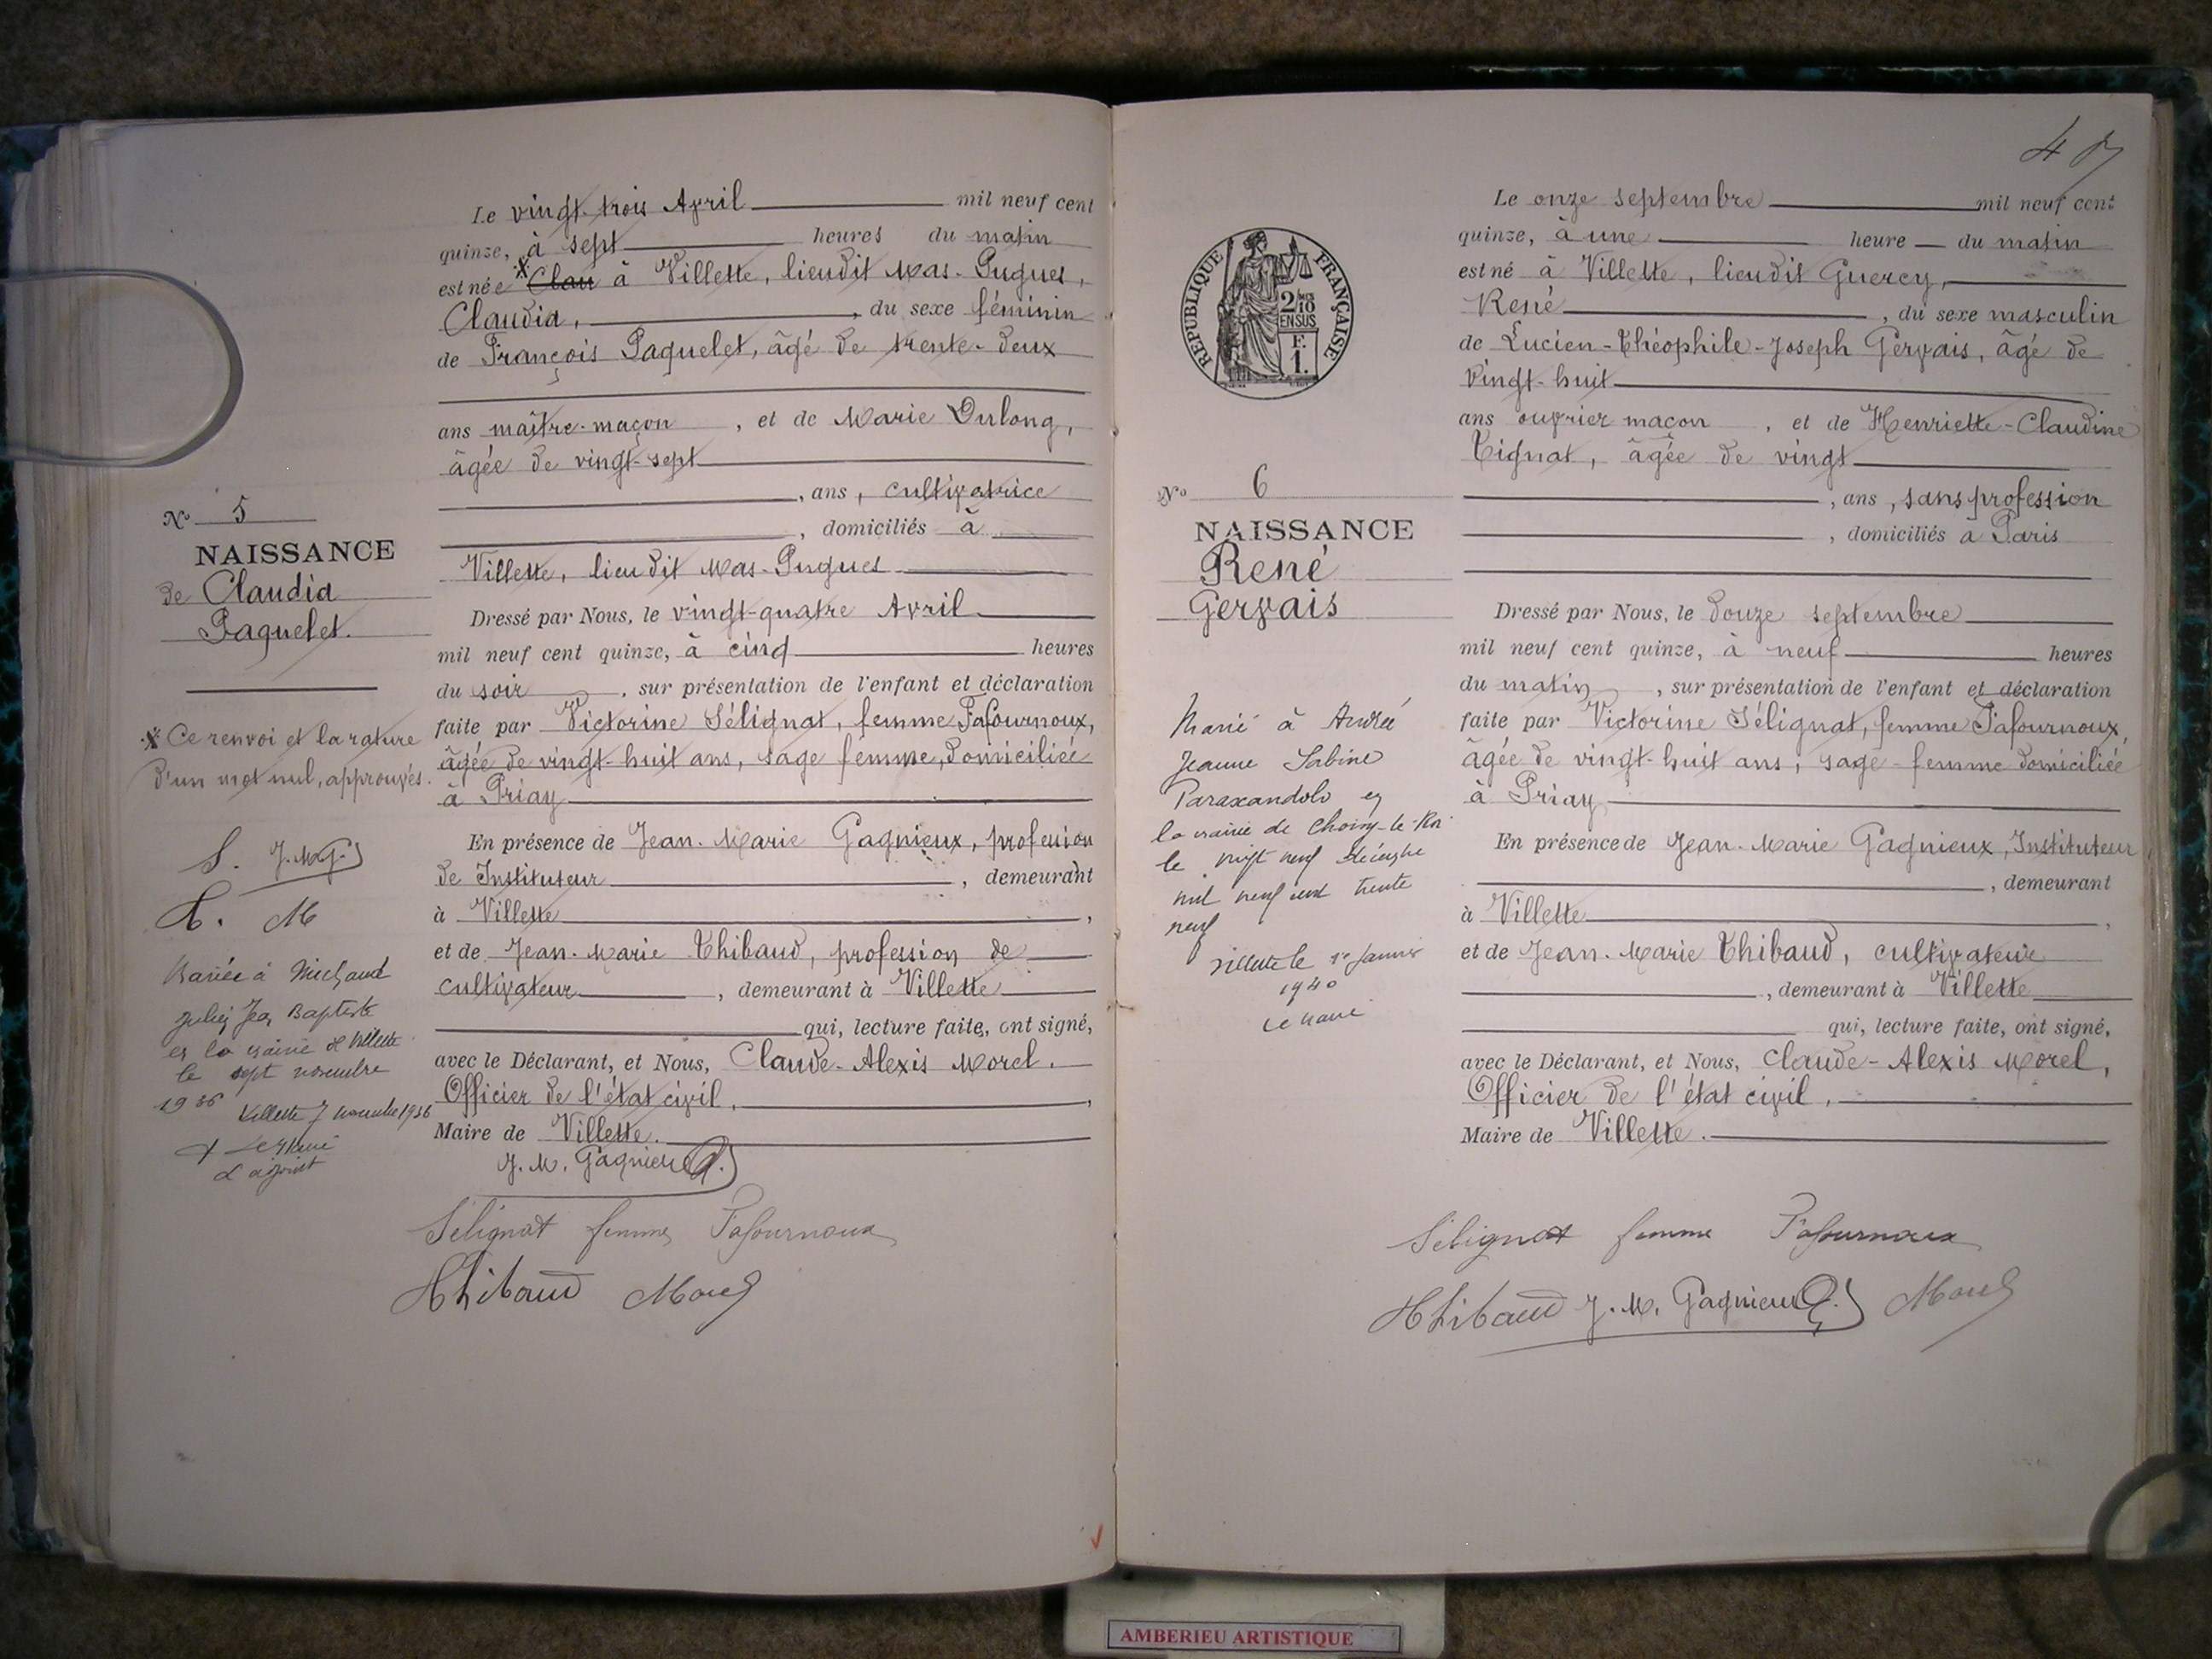 Le vingt-trois Avril mil neuf cent
quinze, à sept heures du matin
est née * Clau à Villette, lieudit Mas-Pugues,
Claudia, , du sexe féminin
de François Paquelet, âgé de trente-deux
ans maître-maçon , et de Marie Dulong,
âgée de vingt-sept
, ans, cultivatrice
, domiciliés à
Villette, lieu dit Mas-Pugues
Dressé par Nous, le vingt-quatre Avril
mil neuf cent quinze, à cinq heures
du soir , sur présentation de l'enfant et déclaration
faite par Victorine Sélignat, femme Pafournoux,
âgée de vingt-huit ans, sage femme, domiciliée
à Priay
En présence de Jean-Marie Gagnieux, profession
de Instituteur , demeurant
à Villette ,
et de Jean-Marie Thibaud, profession de
cultivateur , demeurant à Villette
qui, lecture faite, ont signé,
avec le Déclarant, et Nous, Claude-Alexis Morel.
Officier de l'état civil, ,
Maire de Villette.
J. M. Gagnieux
Sélignat femme Pafournoux
Thibaud Morel
N° 5
NAISSANCE
de Claudia
Paquelet.
* Ce renvoi et la rature
d'un mot nul, approuvés.
S. J. M. G.
T. M
Mariée à Michaud
Julien Jean Baptiste
en la mairie de Villette
le sept novembre
1936
Villette 7 novembre 1936
Le Maire
L'adjoint
47
REPUBLIQUE FRANÇAISE
2/10
EN SUS
F.
1.
N° 6
NAISSANCE
René
Gervais
Marié à Andrée
Jeanne Sabine
Paraxandolo en
la mairie de Choisy-le-Roi
le vingt neuf décembre
mil neuf cent trente
neuf
Villette le 1er Janvier
1940
Le Maire
Le onze septembre mil neuf cent
quinze, à une heure du matin
est né à Villette, lieu dit Guercy,
René , du sexe masculin
de Lucien-Théophile-Joseph Gervais, âgé de
vingt-huit
ans ouvrier maçon , et de Henriette-Claudine
Tignat, âgée de vingt
, ans, sans profession
, domiciliés à Paris
Dressé par Nous, le douze septembre
mil neuf cent quinze, à neuf heures
du matin , sur présentation de l'enfant et déclaration
faite par Victorine Sélignat, femme Pafournoux,
âgée de vingt-huit ans, sage-femme domiciliée
à Priay
En présence de Jean-Marie Gagnieux, Instituteur
, demeurant
à Villette ,
et de Jean-Marie Thibaud, cultivateur
, demeurant à Villette
qui, lecture faite, ont signé,
avec le Déclarant, et Nous, Claude-Alexis Morel,
Officier de l'état civil,
Maire de Villette.
Sélignat femme Pafournoux
Thibaud J. M. Gagnieux Morel
AMBERIEU ARTISTIQUE